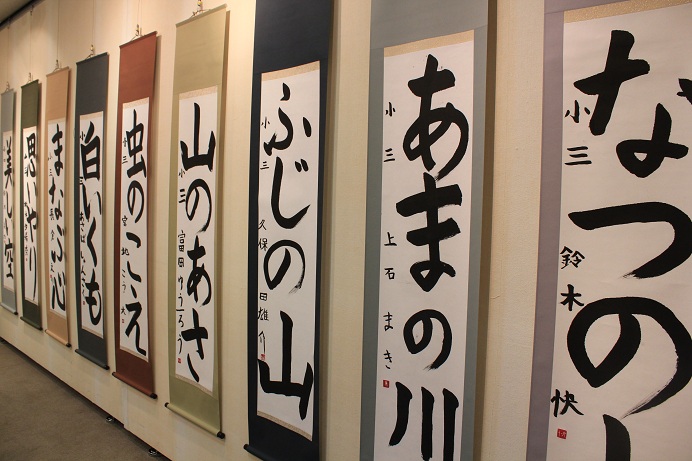 なつの
小三 鈴木 快
あまの川
小三 上石 まき
ふじの山
小三 久保田雄介
山のあさ
小三 富岡
虫のこえ
白いくも
まなぶ心
思いやり
美しい空